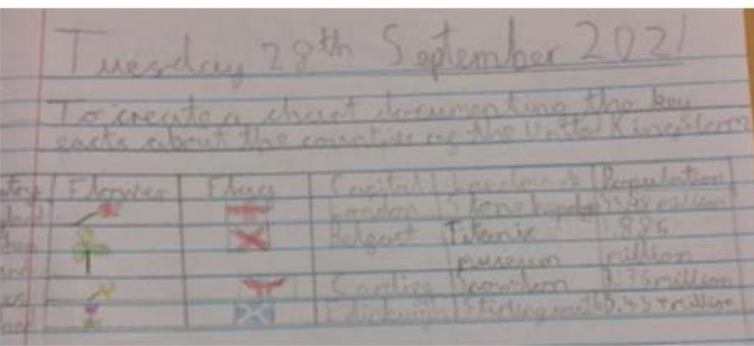 Tuesday 28th September 2021
To create a chart documenting the key
facts about the countries of the United Kingdom
Flower Flag Capital Landmark Population
London
Belgast Titanic 1.885
museum million
Cardigg Snowdon million
Edinburgh Stirling million